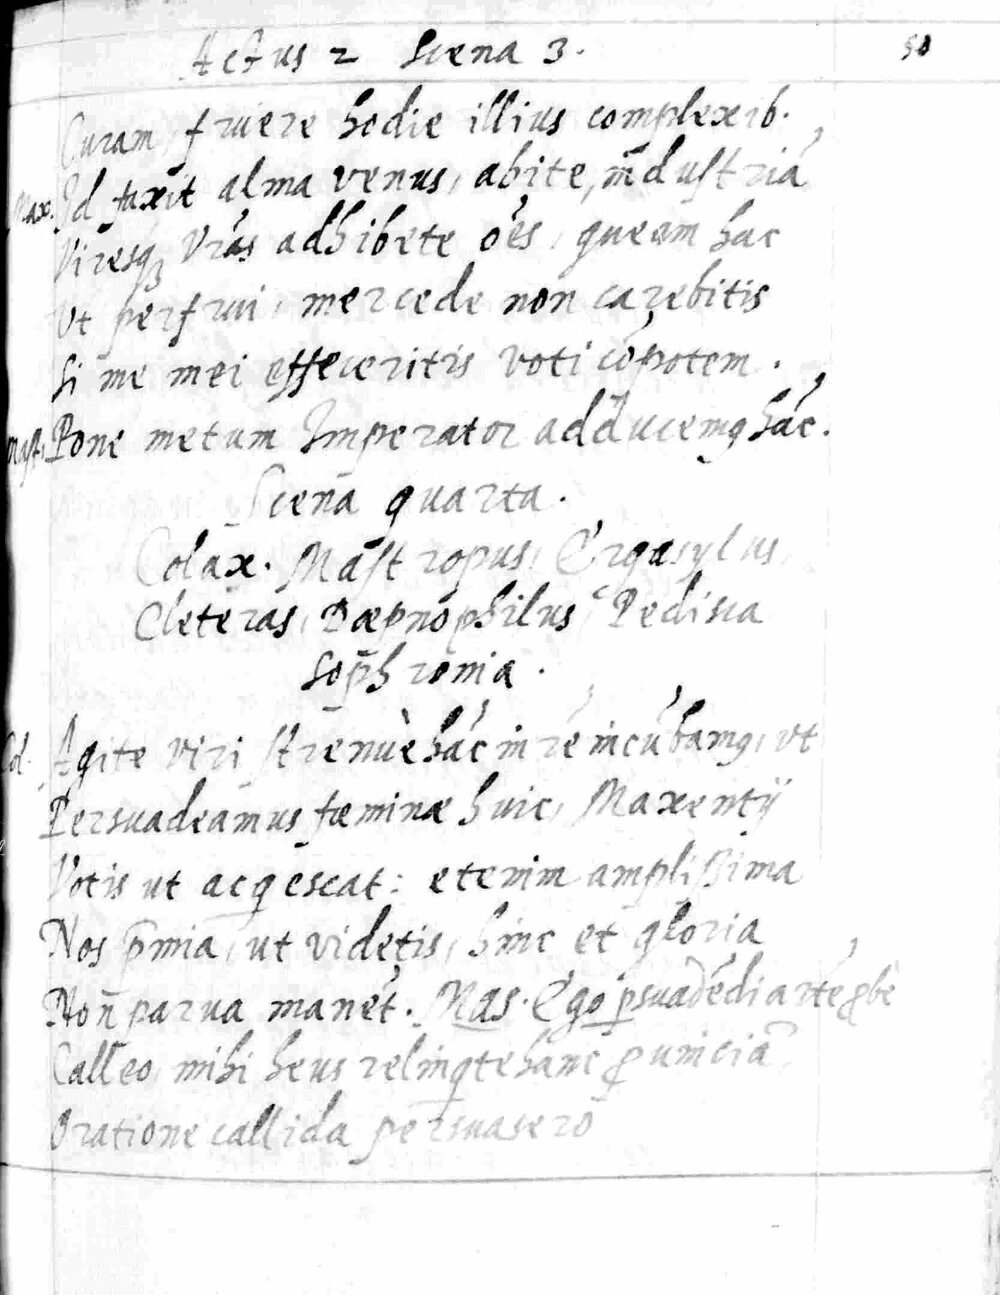 Actus 2 Scena 3.
50
Curam, fruere hodie illius complexib.
Max. Id faxit alma venus, abite, īndustriā
Viresqȝ Vr̄as adhibete ōes, queam hac
Ut perfrui, mercede non carebitis
Si me mei effeceritis voti cōpotem.
Mast. Pone metum Imperator adducemꝰ hāc.
Scena quarta.
Colax. Mastropus, Ergasylus,
Cleteras, Dæpnophilus, Pedisca
Sophronia.
Col. Agite viri strenuè hāc in rē incūbamꝰ, ut
Persuadeamus fæminæ huic, Maxentij
Votis ut acq̄escat: etenim amplissima
Nos p̄mia, ut videtis, hinc et gloria
Non parva manēt. Mas. Ego ꝑsuadēdi artē ꝓbè
Calleo, mihi heus relinqte hanc ꝓvinciā.
Oratione callida persuasero